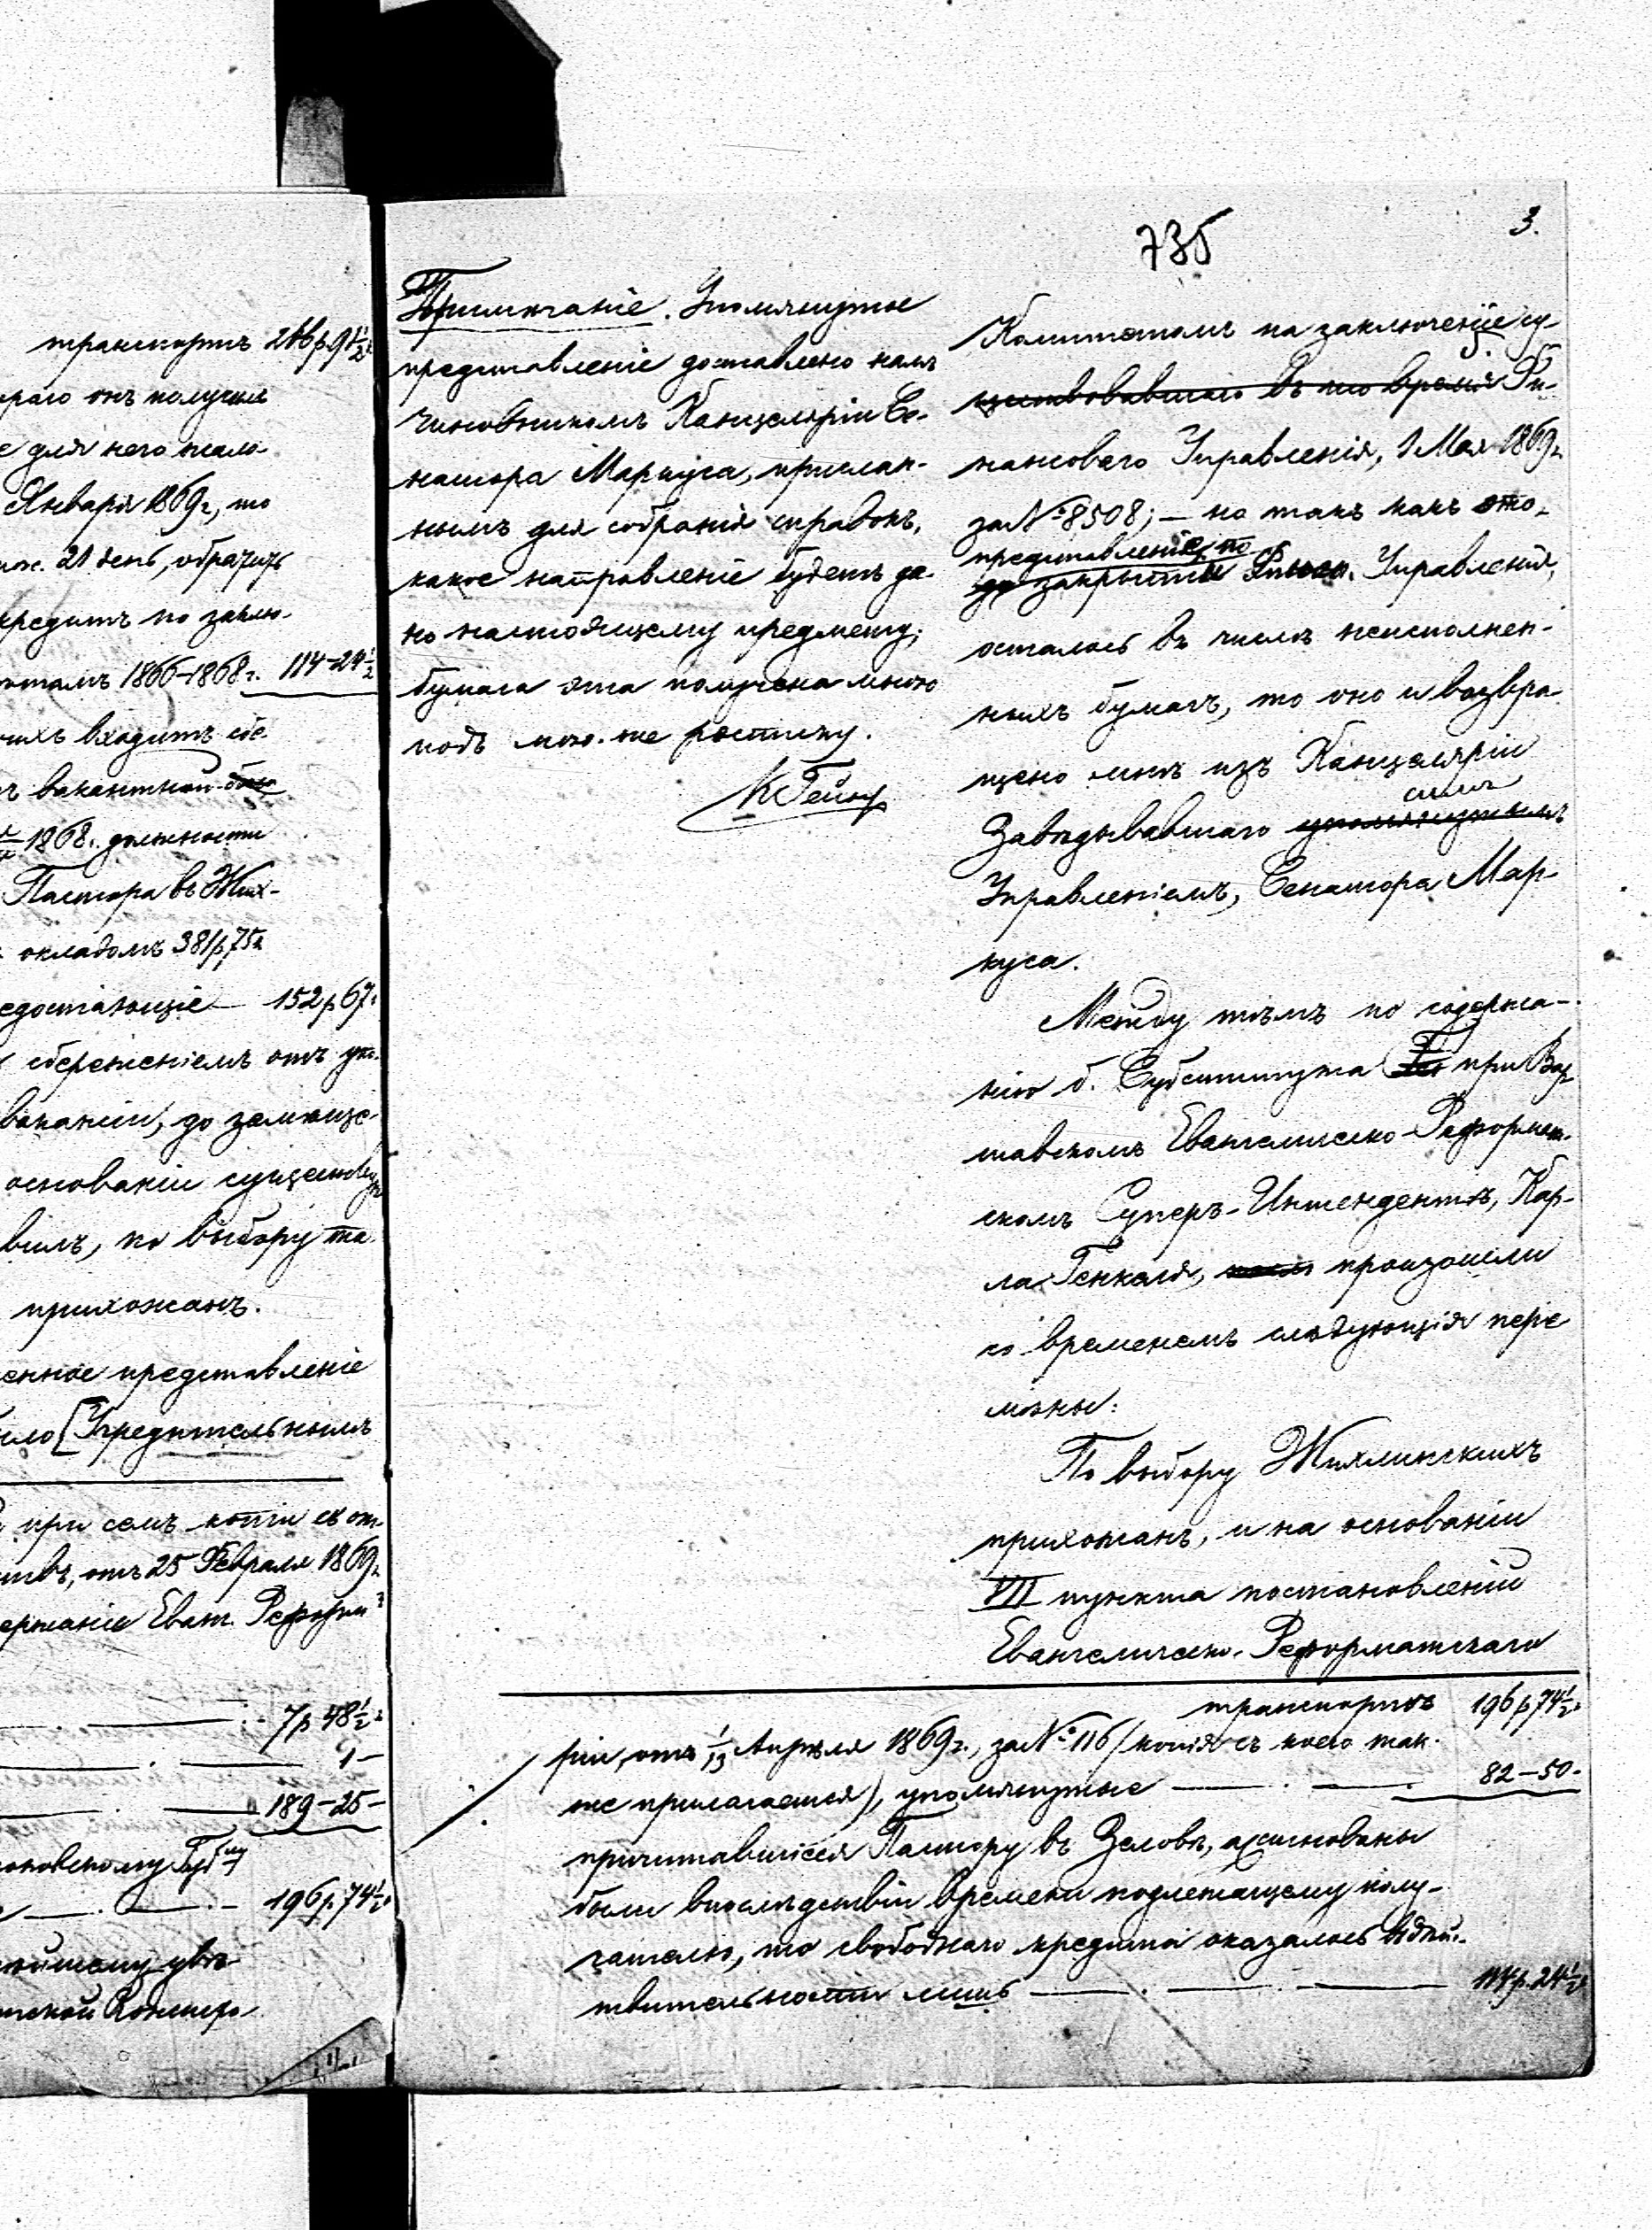 транспортъ 266 р. 91½
раго онъ получилъ
е для него жало-
Января 1869 г., то
21 день, обратить
кредитъ по заклю-
1866-1868 г. 114-24½
входитъ сбе-
вакантной
1868 г. должности
Пастора въ Жих-
окладомъ 381 р. 75 к
едостающіе — 152 р 67 к
сбереженіемъ отъ
вакансіи, до замѣще-
основаніи существую
віилъ, по выбору
прихожанъ.
енное представленіе
ило [Учредительнымъ
при семъ копіи съ от-
отъ 25 Февраля 1869 г
ержаніи Еванг. Реформ
7 р 48½
1 —
189 - 25 -
196 р. 74½
735
3.
Примѣчаніе. Упомянутое
представленіе доставлено намъ
чиновникомъ Канцеляріи Се-
натора Маркуса, прислан-
нымъ для собранія справокъ,
какое направленіе будетъ да-
но настоящему предмету;
бумага эта получена мною
подъ мою-же росписку.
КГейнр
Комитетомъ на заключеніе су-
ществовавшаго въ то время Фи-
нансоваго Управленія, 1 Мая 1869 г.
за № 8508; — но такъ какъ это-
представленіе, по
до закрытіи Финан. Управленія,
осталось въ числѣ неисполнен-
ныхъ бумагъ, то оно и возвра-
щено мнѣ изъ Канцеляріи
симъ
Завѣдывавшаго упомянутымъ
Управленіемъ, Сенатора Мар-
куса.
Между тѣмъ по содержа-
нію б. Субститута при Вар-
шавскомъ Евангелическо-Реформат-
скомъ Суперъ-Интендентѣ, Кар-
ла Генкеля, произошли
со временемъ слѣдующія пере
мѣны:
По выбору Жихлинскихъ
прихожанъ, и на основаніи
VII пункта постановленій
Евангелическо-Реформатскаго
транспортъ 196 р 74½ к
ріи, отъ 1/13 Апрѣля 1869 г., за № 116 (копія съ коего так-
же прилагается), упомянутые — 82 — 50 -
причитавшіеся Пастору въ Зеловѣ, ассигнованы
были впослѣдствіи времени подлежащему полу-
чателю, то свободнаго кредита оказалось въ дѣй-
твительности лишь — 114 р. 24½